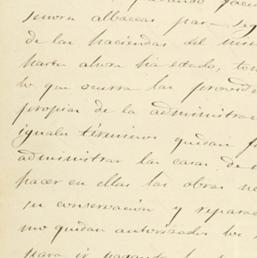 señora albacea para seg
de las haciendas del mis
hasta ahora ha estado, tom
lo que ocurra las provide
propias de la administrac
iguales términos quedan f
administrar las casas de
hacer en ellas las obras ne
su conservación y repara
mo quedan autorizados los
para ir pagando